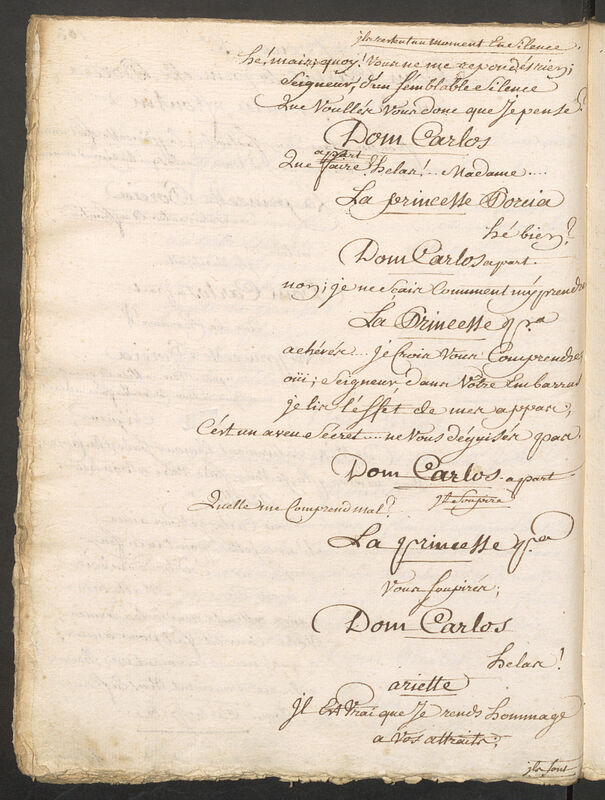 ils restent un moment En Silence
hé! mais, quoy! Vous ne me repondés rien;
Seigneur, d'un semblable Silence
Que Voullés Vous donc que Je pense?
Dom Carlos
apart
Que faire helas!.. Madame....
La princesse Porcia
hé bien?
Dom Carlos apart.
non; je ne scais Comment m'y prendre
La Princesse pr.a
achévés... je Crois Vous Comprendre,
oüi; Seigneur, dans Votre Embarras
je lis l'effet de mes appas,
C'ést un aveu Secret.... ne Vous déguisés pas.
Dom Carlos apart
jl Soupire
Qu'elle me Comprend mal?
La princesse pr.a
Vous soupirés;
Dom Carlos
helas!
ariette
jl Est Vrai que Je rends hommage
a Vos attraits;
ils sont